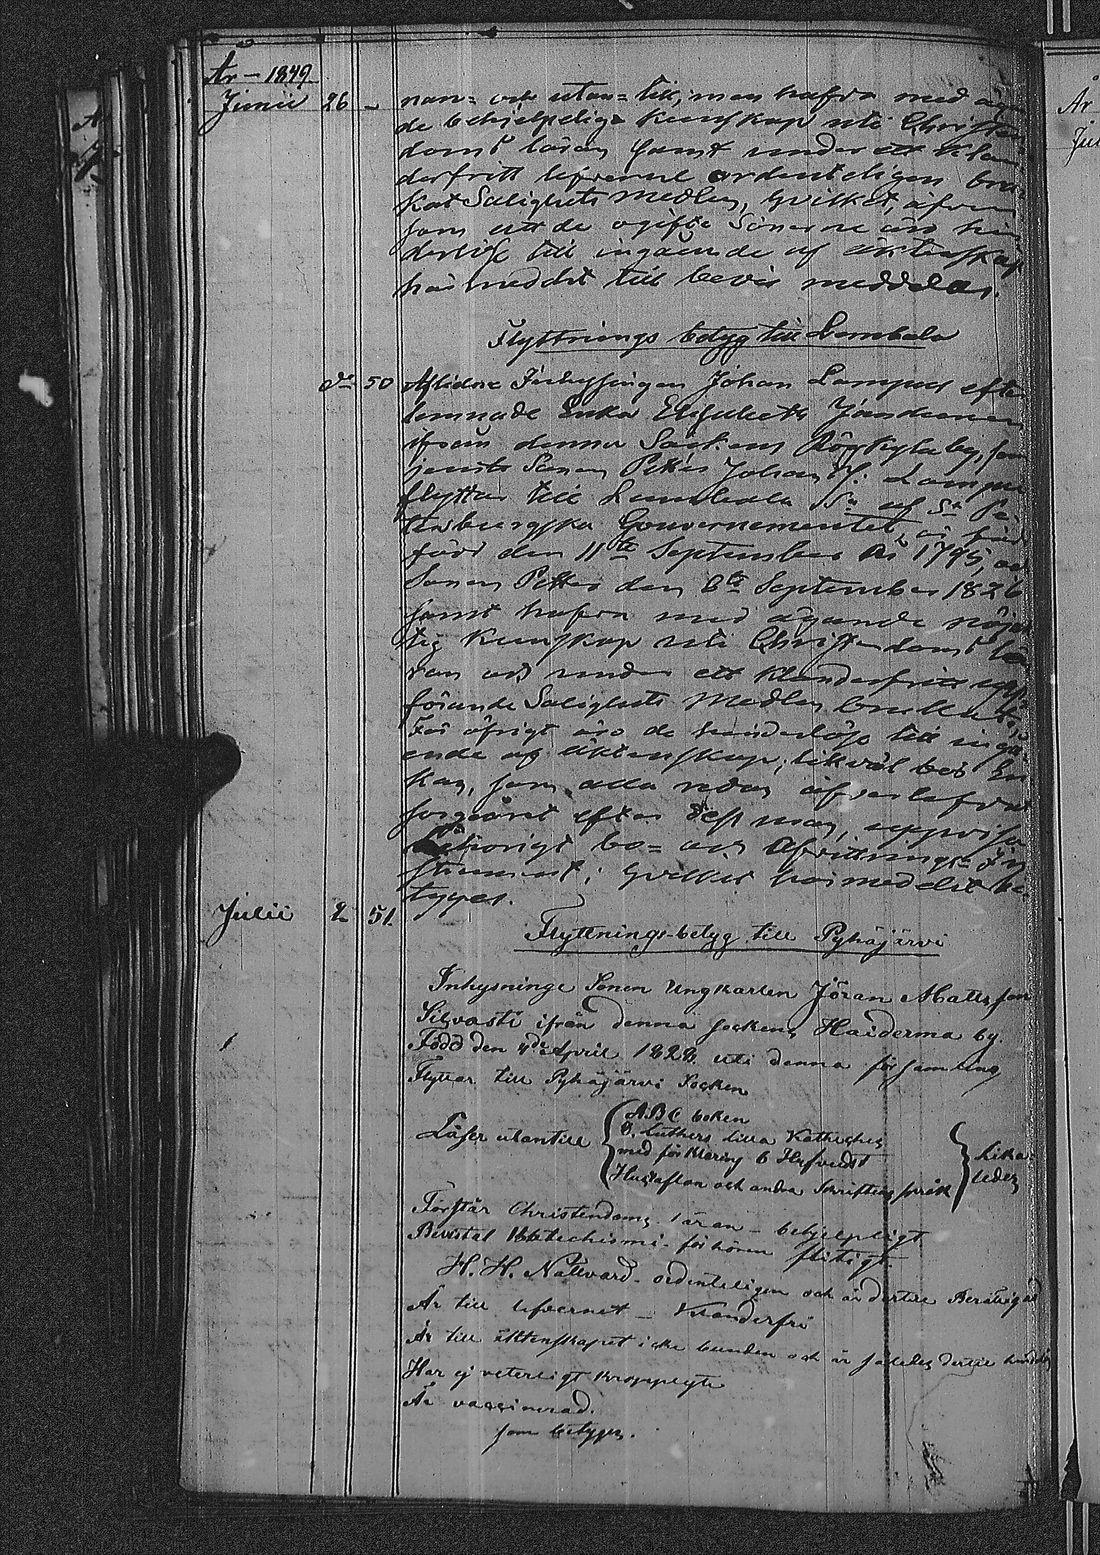 År – 1849
Junii 26 – nan- och utan-till, men hafva med ägan
de behjelpelig kunskap uti Christen
doms läran samt under ett klan
derfritt lefverne ordenteligen bru
kat Salighets Medlen, hvilket, äfven
som att de ogifte Sönerne äro hin
derlöse till ingående af äktenskap
härmedelst till bevis meddelas.
Flyttnings betyg till Lembala
do 50 Aflidne Inhysingen Johan Lampus efter
lemnade Enka Elisabeth Jöransdotter
ifrån denna Sockens by, som
jemte Sonen Petter Johan
flyttar till Lembala Sn af St Pe-
tersburgska Gouvernementet, är
född den 11te September År 1795, och
Sonen Petter den 6te September 1826
samt hafva med ägande nöjak
tig kunskap uti Christendoms lä
ran och under ett klanderfritt upp
förande Salighets Medlen brukat.
För öfrigt äro de hinderlöse till ingå
ende af äktenskap, likväl bör En
kan, som alla redan
sorgeåret efter dess man, uppvisa
behörigt bo- och Afvittrings-In
strument; hvilket härmedelst be-
tygas.
Julii 2 51. Flyttnings-betyg till Pyhäjärvi
Inhysninge Sonen Ungkarlen Jöran Mattsson
Silvasti ifrån denna Sockens Haiderma by.
Född den 4de April 1828 uti denna församling
Flyttar till Pyhäjärvi Socken
Läser utantill { ABC boken
D. Luthers lilla Katheches
med förklaring
Hustaflan och andra Skriftens språk } Lika-
ledes
Förstår Christendoms läran – behjelpligt
Bevistat Katechismi-förhören flitigt.
H. H. Nattvard – ordenteligen och är dertill Berättigad
Är till lefvernet – Klanderfri
Är till äktenskapet icke bunden och är således dertill
Har ej veterligt kroppslyte
Är vaccinerad.
som betygas.
År